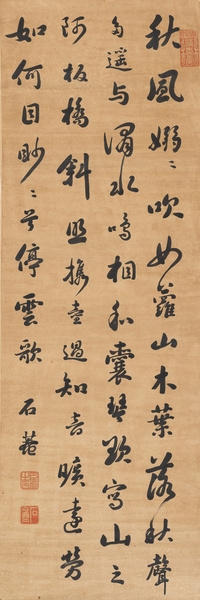 秋風嫋〻吹女蘿山木葉落秋聲
多遥与澗水鳴相和囊琴欲寫山之
阿板橋斜攜壺過知音曠遠勞
如何目眇〻兮停雲歌
石菴